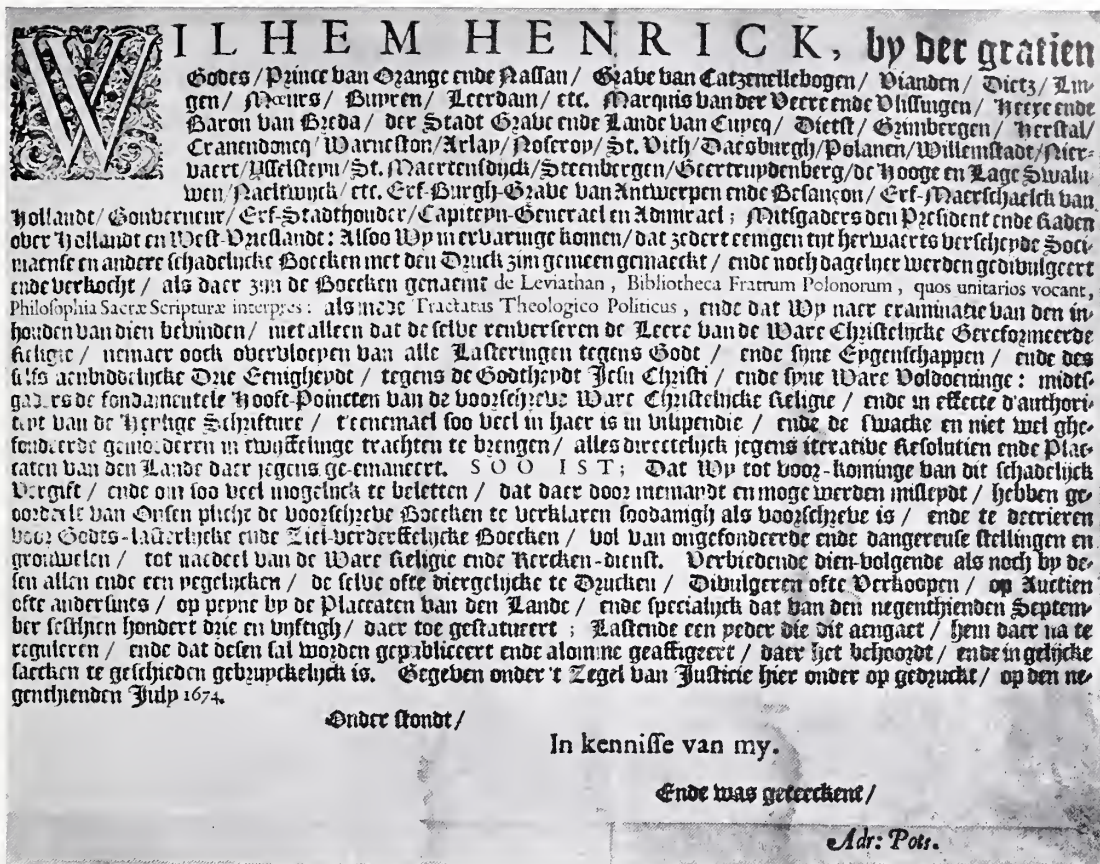 WILHEM HENRICK, by der gratien
Godes / Prince van Orange ende Nassau / Grave van Catzenellebogen / Vianden / Dietz / Lin-
gen / Mœurs / Buyren / Leerdam / etc. Marquis van der Veere ende Vlissingen / Heere ende
Baron van Breda / der Stadt Grave ende Lande van Cuycq / Dietst / Grimbergen / Herstal /
Cranendoncq / Warneston / Arlay / Noseroy / St. Vith / Daesburgh / Polanen / Willemstadt / Nier-
vaert / Ysselsteyn / St. Maertensdijck / Steenbergen / Geertruydenberg / de Hooge en Lage Swalu-
wen / Naeltwijck / etc. Erf-Burgh-Grave van Antwerpen ende Besançon / Erf-Maerschalck van
Hollandt / Gouverneur / Erf-Stadthouder / Capiteyn-Generael en Admirael ; Mitsgaders den President ende Raden
over Hollandt en West-Vrieslandt : Alsoo Wy in ervaringe komen / dat zedert eenigen tijt herwaerts verscheyde Soci-
niaense en andere schadelijcke Boecken met den Druck zijn gemeen gemaeckt / ende noch dagelijcx werden gedivulgeert
ende verkocht / als daer zijn de Boecken genaemt de Leviathan , Bibliotheca Fratrum Polonorum , quos unitarios vocant,
Philosophia Sacræ Scripturæ interpres : als mede Tractatus Theologico Politicus , ende dat Wy naer examinatie van den in-
houden van dien bevinden / niet alleen dat de selve renverseren de Leere van de Ware Christelijcke Gereformeerde
Religie / nemaer oock overvloeyen van alle Lasteringen tegens Godt / ende sijne Eygenschappen / ende des
selfs aenbiddelijcke Drie Eenigheydt / tegens de Godtheydt Jesu Christi / ende syne Ware Voldoeninge : midts-
gaders de fondamentele Hooft-Poincten van de voorschreve Ware Christelijcke Religie / ende in effecte d'authori-
teyt van de Heylige Schrifture / t'eenemael soo veel in haer is in vilipendie / ende de swacke en niet wel ghe-
fondeerde gemoederen in twijffelinge trachten te brengen / alles directelijck jegens iterative Resolutien ende Plac-
caten van den Lande daer jegens ge-emaneert. SOO IST; Dat Wy tot voor-kominge van dit schadelijck
Vergift / ende om soo veel mogelijck te beletten / dat daer door niemandt en moge werden misleydt / hebben ge-
oordeelt van Onsen plicht de voorschreve Boecken te verklaren soodanigh als voorschreve is / ende te decrieren
voor Godts-lasterlijcke ende Ziel-verderffelijcke Boecken / vol van ongefondeerde ende dangereuse stellingen en
grouwelen / tot nadeel van de Ware Religie ende Kercken-dienst. Verbiedende dien-volgende als noch by de-
sen allen ende een yegelijcken / de selve ofte diergelijcke te Drucken / Divulgeren ofte Verkoopen / op Auctien
ofte andersints / op peyne by de Placcaten van den Lande / ende specialijck dat van den negenthienden Septem-
ber sesthien hondert drie en vijftigh / daer toe gestatueert ; Lastende een yeder die dit aengaet / hem daer na te
reguleren / ende dat desen sal worden gepubliceert ende alomme geaffigeert / daer het behoordt / ende in gelijcke
saecken te geschieden gebruyckelijck is. Gegeven onder 't Zegel van Justicie hier onder op gedruckt / op den ne-
genthienden July 1674.
Onder stondt /
In kennisse van my.
Ende was geteeckent /
Adr: Pots.